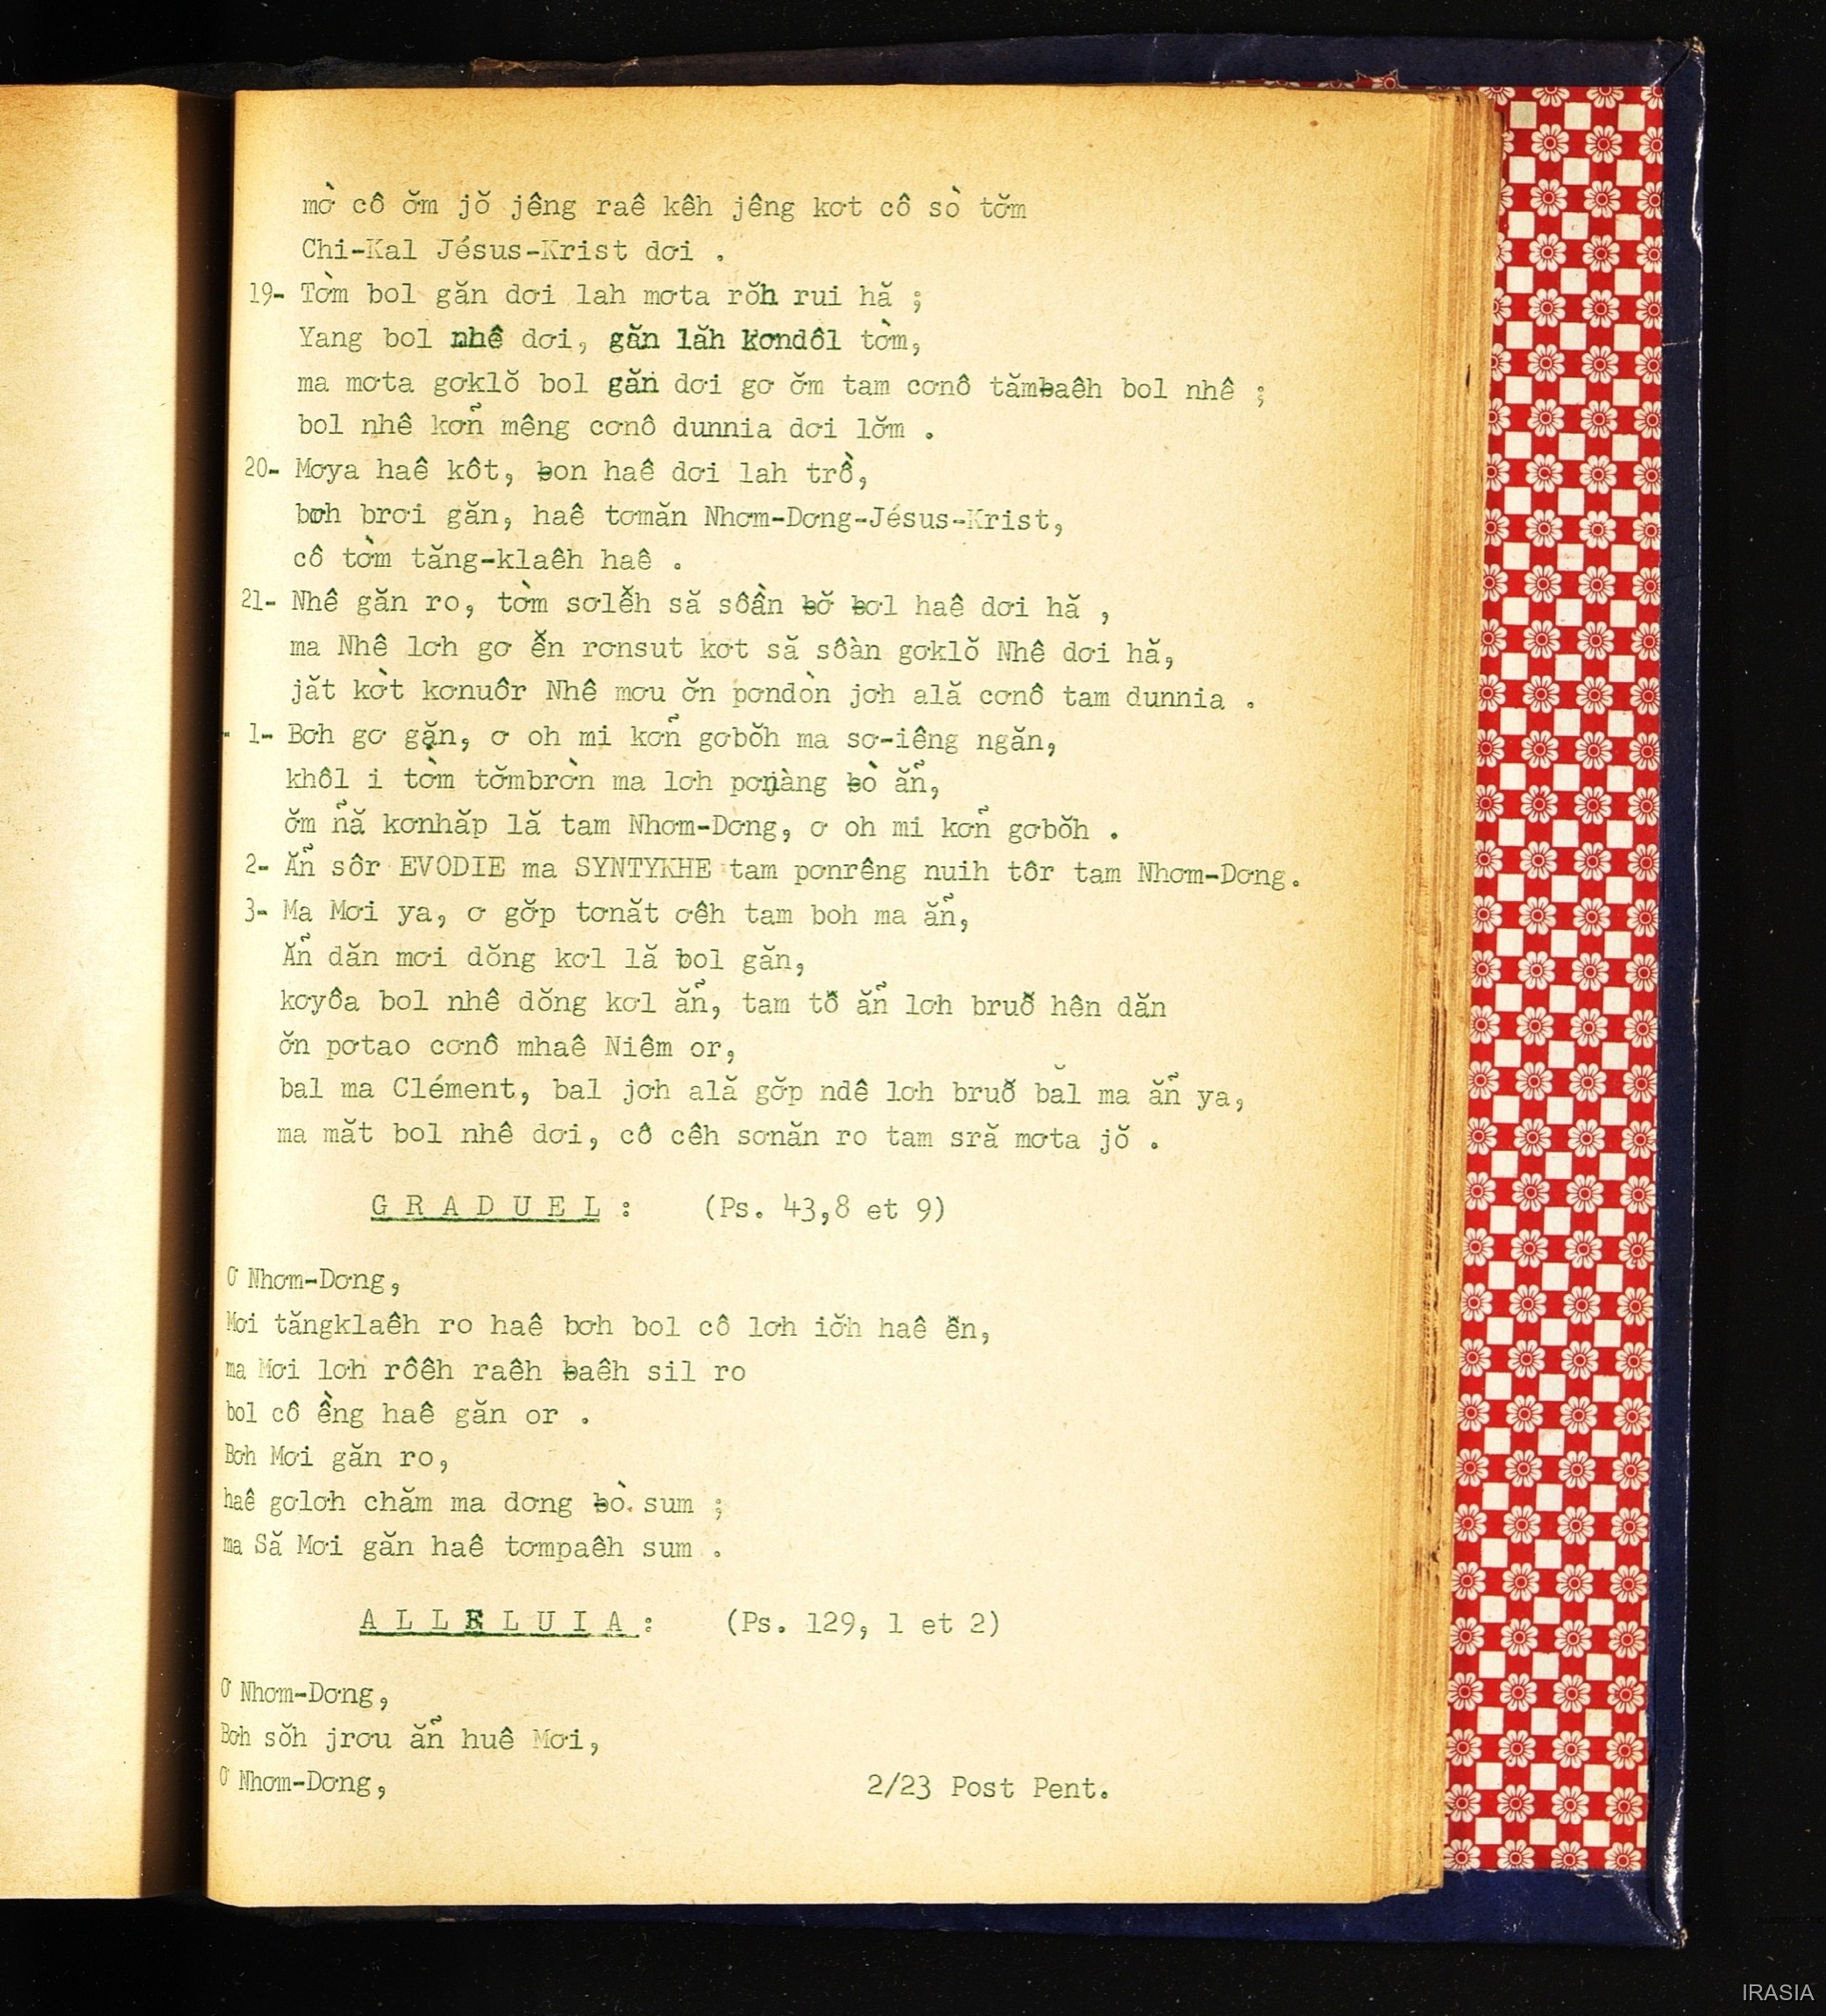 mờ cô ơ̆m jŏ jêng raê kêh jêng kơt cô sò tơ̆m
Chi-Kal Jésus-Krist dơi .
19- Tờm bol găn dơi lah mơta rŏh rui hă ;
Yang bol nhê dơi, găn lăh kơndôl tờm,
ma mơta gơklŏ bol găn dơi gơ ơ̆m tam cơnô tămƀaêh bol nhê ;
bol nhê kơñ mêng cơnô dunnia dơi lơ̆m .
20- Mơya haê kôt, ƀon haê dơi lah trồ,
bơh brơi găn, haê tơmăn Nhơm-Dơng-Jésus-Krist,
cô tờm tăng-klaêh haê .
21- Nhê găn ro, tờm sơlê̆h să sôần ƀơ̆ ƀơl haê dơi hă ,
ma Nhê lơh gơ ê̆n rơnsut kơt să sôàn gơklŏ Nhê dơi hă,
jăt kờt kơnuôr Nhê mơu ơ̆n pơndòn jơh ală cơnô tam dunnia .
1- Bơh gơ găn, ơ oh mi kơñ gơbŏh ma sơ-iêng ngăn,
khôl i tờm tơ̆mbrờn ma lơh pơnjàng ƀò ăñ,
ơ̆m ñă kơnhăp lă tam Nhơm-Dơng, ơ oh mi kơñ gơbŏh .
2- Ăñ sôr EVODIE ma SYNTYKHE tam pơnrêng nuih tôr tam Nhơm-Dơng.
3- Ma Mơi ya, ơ gơ̆p tơnăt ơêh tam boh ma ăñ,
Ăñ dăn mơi dŏng kơl lă bol găn,
kơyôa bol nhê dŏng kơl ăñ, tam tô̆ ăñ lơh bruô̆ hên dăn
ơ̆n pơtao cơnô mhaê Niêm or,
bal ma Clément, bal jơh ală gơ̆p ndê lơh bruô̆ băl ma ăñ ya,
ma măt bol nhê dơi, cô cêh sơnăn ro tam sră mơta jŏ .
G R A D U E L : (Ps. 43,8 et 9)
Ơ Nhơm-Dơng,
Mơi tăngklaêh ro haê bơh bol cô lơh iơ̆h haê ê̆n,
ma Mơi lơh rôêh raêh ƀaêh sil ro
bol cô ềng haê găn or .
Bơh Mơi găn ro,
haê gơlơh chăm ma dơng ƀò. sum ;
ma Să Mơi găn haê tơmpaêh sum .
A L L E L U I A : (Ps. 129, 1 et 2)
Ơ Nhơm-Dơng,
Bơh sŏh jrơu ăñ huê Mơi,
Ơ Nhơm-Dơng,
2/23 Post Pent.
IRASIA